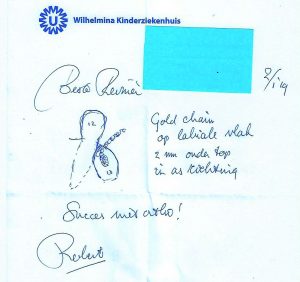 Wilhelmina Kinderziekenhuis
Beste
Gold chain
12
op labiale vlak
2 mm onder top
13
in as richting
Succes met ortho!
Robert